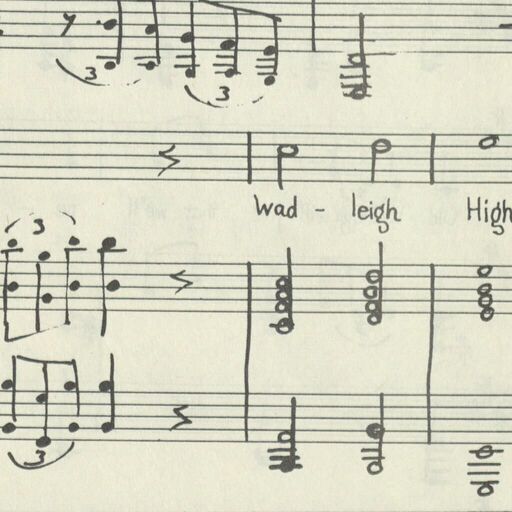 3 3
wad - leigh High
3
3